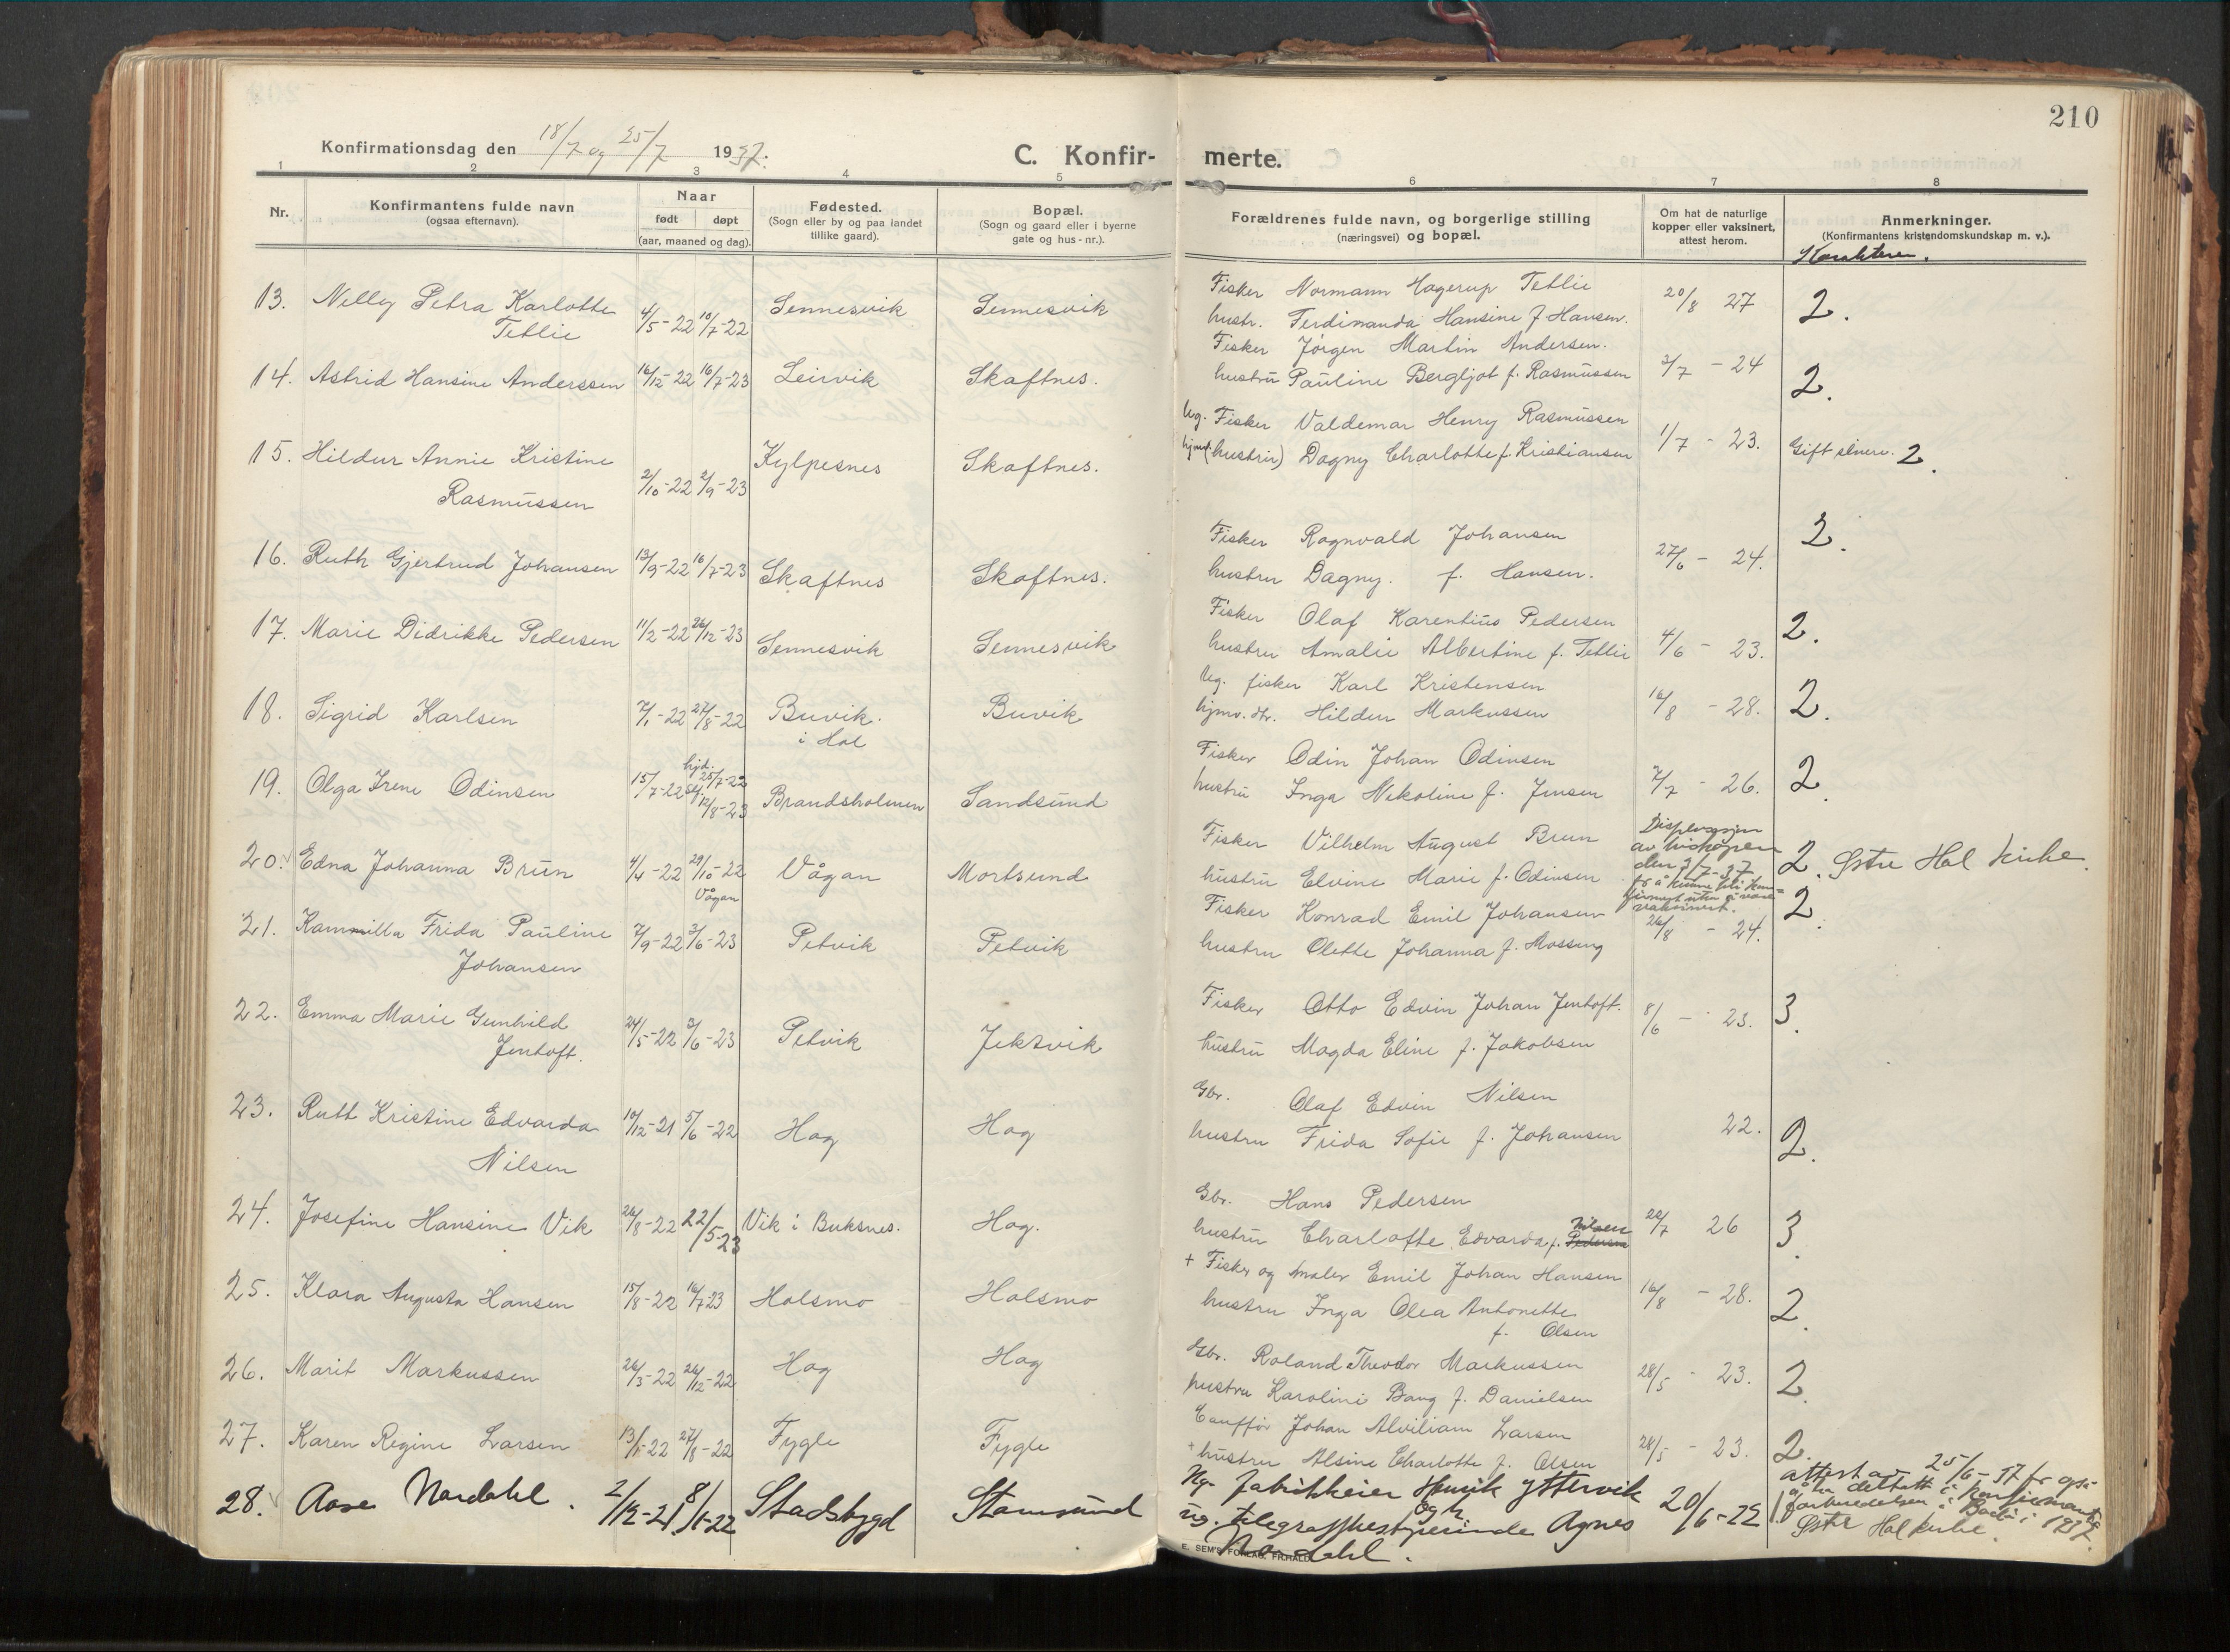 210
Konfirmationsdag den 18/7 og 25/7 1937.
C. Konfir- merte.
1 2 3 4 5 6 7 8
Nr.
Konfirmantens fulde navn
(ogsaa efternavn).
Naar
født døpt
(aar, maaned og dag).
Fødested.
(Sogn eller by og paa landet
tillike gaard).
Bopæl.
(Sogn og gaard eller i byerne
gate og hus-nr.).
Forældrenes fulde navn, og borgerlige stilling
(næringsvei) og bopæl.
Om hat de naturlige
kopper eller vaksinert,
attest herom.
Anmerkninger.
(Konfirmantens kristendomskundskap m. v.).
Karakterer.
13. Nelly Petra Karlotte
Tetlie
4/5-22 10/7-22
Sennesvik
Sennesvik
Fisker Normann Hagerup Tetlie
hustr. Ferdinanda Hansine f. Hansen.
20/8 27
2.
14. Astrid Hansine Anderssen
16/12-22 16/7-23
Leirvik
Skaftnes.
Fisker Jørgen Martin Andersen.
hustru Pauline Bergljot f. Rasmussen
3/7 - 24
2.
15. Hildur Annie Kristine
Rasmussen
2/10-22 2/9-23
Kylpesnes
Skaftnes.
Ug. Fisker Valdemar Henry Rasmussen
(hustru) Dagny Charlotte f. Kristiansen
1/7 - 23.
Gift senere. 2.
16. Ruth Gjertrud Johansen
13/9-22 16/7-23
Skaftnes
Skaftnes.
Fisker Ragnvald Johansen
hustru Dagny. f. Hansen.
27/6 - 24.
2.
17. Marie Didrikke Pedersen
11/2-22 26/12-23
Sennesvik
Sennesvik
Fisker Olaf Karentius Pedersen
hustru Amalie Albertine f. Tetlie
4/6 - 23.
2.
18. Sigrid Karlsen
7/1-22 27/8-22
Buvik.
i Hol
Buvik
Ug. fisker Karl Kristensen
hjmv. dtr. Hildur Markussen
16/8 - 28.
2.
19. Olga Irene Odinsen
15/7-22
hjd. 25/7-22
12/8-23
Brandsholmen
Sandsund
Fisker Odin Johan Odinsen
hustru Inga Nekoline f. Jensen
7/7 - 26.
2.
20. Edna Johanna Brun
4/4-22 29/10-22
Vågan
Vågan
Mortsund
Fisker Vilhelm August Brun
hustru Elvine Marie f. Odinsen
Dispensasjon
av biskopen
den 7/7-37
for å kunne bli kon=
firmert uten å være
vaksinert.
2. Østre Hol kirke
21. Kammilla Frida Pauline
Johansen
7/9-22 3/6-23
Petvik
Petvik
Fisker Konrad Emil Johansen
hustru Olette Johanna f. Mossung
26/8 - 24.
2.
22. Emma Marie Gunhild
Jentoft.
24/5-22 3/6-23
Petvik
Jektvik
Fisker Otto Edvin Johan Jentoft.
hustru Magda Eline f. Jakobsen
8/6 - 23.
3.
23. Ruth Kristine Edvarda
Nilsen
10/12-21 5/6-22
Hag
Hag
Gbr. Olaf Edvin Nilsen
hustru Frida Sofie f. Johansen
22.
2.
24. Josefine Hansine Vik
26/8-22 22/5-23
Vik i Buksnes.
Hag.
Gbr. Hans Pedersen
hustru Charlotte Edvarda f. Pedersen Nilsen
22/7 26
3.
25. Klara Augusta Hansen
15/8-22 16/7 23
Holsmo
Holsmo
+ Fisker og maler Emil Johan Hansen
hustru Inga Olea Antonette
f. Olsen
16/8 - 28.
2.
26. Marit Markussen
26/3-22 26/12-22
Hag
Hag
Gbr. Roland Theodor Markussen
hustru Karolini Bang f. Danielsen
28/5 - 23.
2.
27. Karen Regine Larsen
13/1-22 27/8-22
Fygle
Fygle
Cauffør Johan Alviliam Larsen
+ hustru Alsine Charlotte f. Olsen
28/5 - 23.
2.
28. Aase Nordahl.
2/12-21 8/1-22
Stadsbygd
Stamsund
Ug. fabrikkeier Henrik Yttervik
og
ug. telegrafbestyrerinde Agnes
Nordahl.
20/6-22
attest av 25/6-37 for også
å ha deltatt i konfirmant
forberedelsen i Bodø i 1937.
Østre Hol kirke.
E. SEM'S FORLAG, FR.HALD